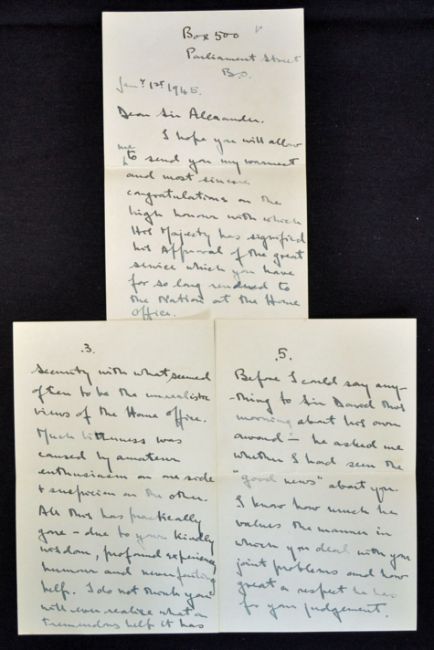 Box 500
Parliament Street
B.O.
Jany 1st 1945.
Dear Sir Alexander.
I hope you will allow
me
to send you my warmest
and most sincere
congratulations on the
high honour with which
His Majesty has signified
his Approval of the great
service which you have
for so long rendered to
the Nation at the Home
Office.
.3.
Security with what seemed
often to be the unrealistic
views of the Home Office.
Much bitterness was
caused by amateur
enthusiasm on one side
& suspicion on the other.
All this has practically
gone - due to your kindly
wisdom, profound experience
humour and never failing
help. I do not think you
will ever realise what a
tremendous help it has
.5.
Before I could say any-
-thing to Sir David this
morning about his own
award - he asked me
whether I had seen the
"good news" about you.
I know how much he
values the manner in
which you deal with you
joint problems and how
great a respect he has
for your judgement.